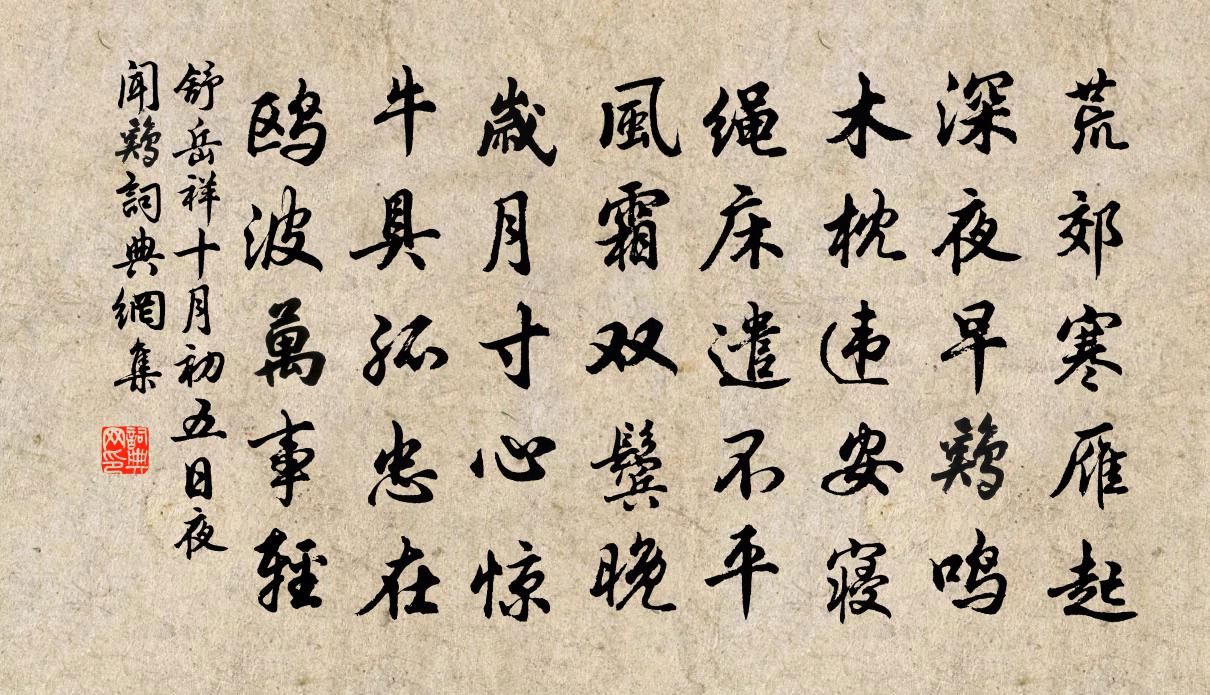 荒郊寒雁起
深夜早鶏鸣
木枕违安寝
绳床遣不平
風霜双鬓晚
歲月寸心惊
牛具孤忠在
鸥波萬事輕
舒岳祥十月初五日夜
聞鶏詞典網集
詞典
网印